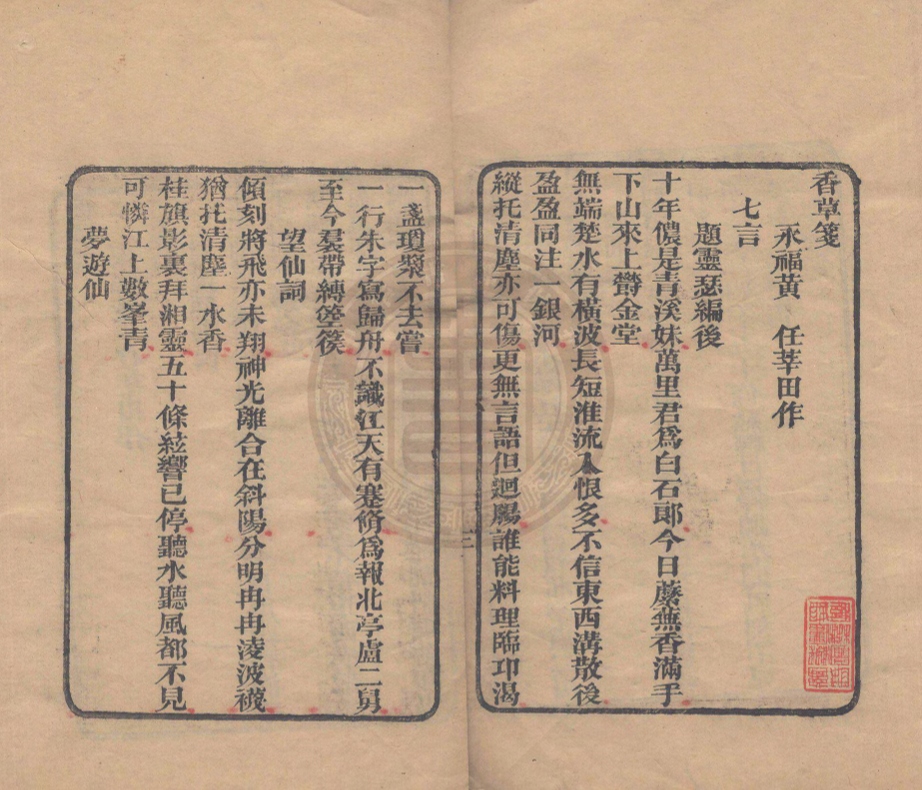 香草箋
永福黃 任莘田作
七言
題靈瑟編後
十年儂是青溪妹萬里君爲白石郎今日蘼蕪香滿手
下山來上鬱金堂
無端楚水有橫波長短淮流入恨多不信東西溝散後
盈盈同注一銀河
縱托清塵亦可傷更無言語但迴腸誰能料理臨卭渴
一盞瓊漿不去嘗
一行朱字寫歸舟不識江天有蹇脩爲報北亭盧二舅
至今羣帶縛箜篌
望仙詞
傾刻將飛亦未翔神光離合在斜陽分明冉冉淩波襪
猶托清塵一水香
桂旗影裏拜湘靈五十條絃響已停聽水聽風都不見
可憐江上數峯青
夢遊仙